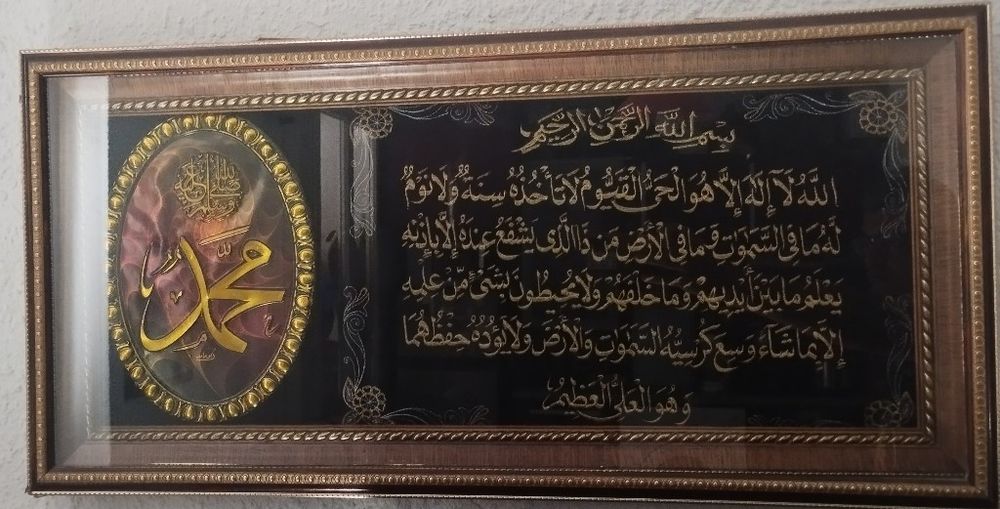 بِسْمِ اللَّهِ الرَّحْمَٰنِ الرَّحِيمِ
اللَّهُ لَآ إِلَٰهَ إِلَّا هُوَ الْحَيُّ الْقَيُّومُ لَا تَأْخُذُهُ سِنَةٌ وَلَا نَوْمٌ
لَهُ مَا فِي السَّمَٰوَٰتِ وَمَا فِي الْأَرْضِ مَن ذَا الَّذِي يَشْفَعُ عِندَهُ إِلَّا بِإِذْنِهِ
يَعْلَمُ مَا بَيْنَ أَيْدِيهِمْ وَمَا خَلْفَهُمْ وَلَا يُحِيطُونَ بِشَيْءٍ مِّنْ عِلْمِهِ
إِلَّا بِمَا شَآءَ وَسِعَ كُرْسِيُّهُ السَّمَٰوَٰتِ وَالْأَرْضَ وَلَا يَؤُدُهُ حِفْظُهُمَا
وَهُوَ الْعَلِيُّ الْعَظِيمُ
محمد